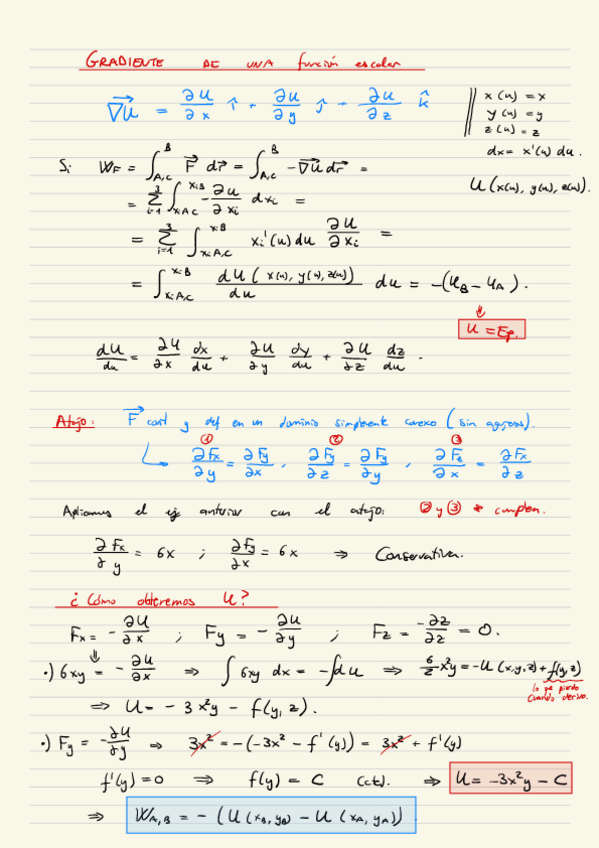 GRADIENTE DE UNA función escalar
∇⃗U = ∂U/∂x î + ∂U/∂y ĵ + ∂U/∂z k̂
x(u) = x
y(u) = y
z(u) = z
dx = x'(u) du.
U(x(u), y(u), z(u)).
Si W_F = ∫_{A,C}^{B} F⃗ dr⃗ = ∫_{A,C}^{B} -∇⃗U dr⃗ =
= Σ_{i=1}^{3} ∫_{xiA,C}^{xiB} -∂U/∂xi dxi =
= Σ_{i=1}^{3} ∫_{xiA,C}^{xiB} xi'(u) du ∂U/∂xi =
= ∫_{xiA,C}^{xiB} dU(x(u), y(u), z(u))/du du = -(U_B - U_A).
⇓
U = Ep.
dU/du = ∂U/∂x dx/du + ∂U/∂y dy/du + ∂U/∂z dz/du.
Atajo: F⃗ cont y def en un dominio simplemente conexo (sin agujeros).
① ② ③
↳ ∂Fx/∂y = ∂Fy/∂x, ∂Fy/∂z = ∂Fy/∂y, ∂Fz/∂x = ∂Fx/∂z
Aplicamos el ej anterior con el atajo: ② y ③ se cumplen.
∂Fx/∂y = 6x ; ∂Fy/∂x = 6x ⇒ Conservativa.
¿Cómo obtenemos U?
Fx = -∂U/∂x ; Fy = -∂U/∂y ; Fz = -∂z/∂z = 0.
⇓
•) 6xy = -∂U/∂x ⇒ ∫ 6xy dx = -∫dU ⇒ 6/2 x²y = -U(x,y,z) + f(y,z)
lo que pierdo
cuando derivo.
⇒ U = -3x²y - f(y,z).
•) Fy = -∂U/∂y ⇒ 3x² = -(-3x² - f'(y)) = 3x² + f'(y)
f'(y) = 0 ⇒ f(y) = C (cte). ⇒ U = -3x²y - C
⇒ W_{A,B} = -(U(x_B, y_B) - U(x_A, y_A))